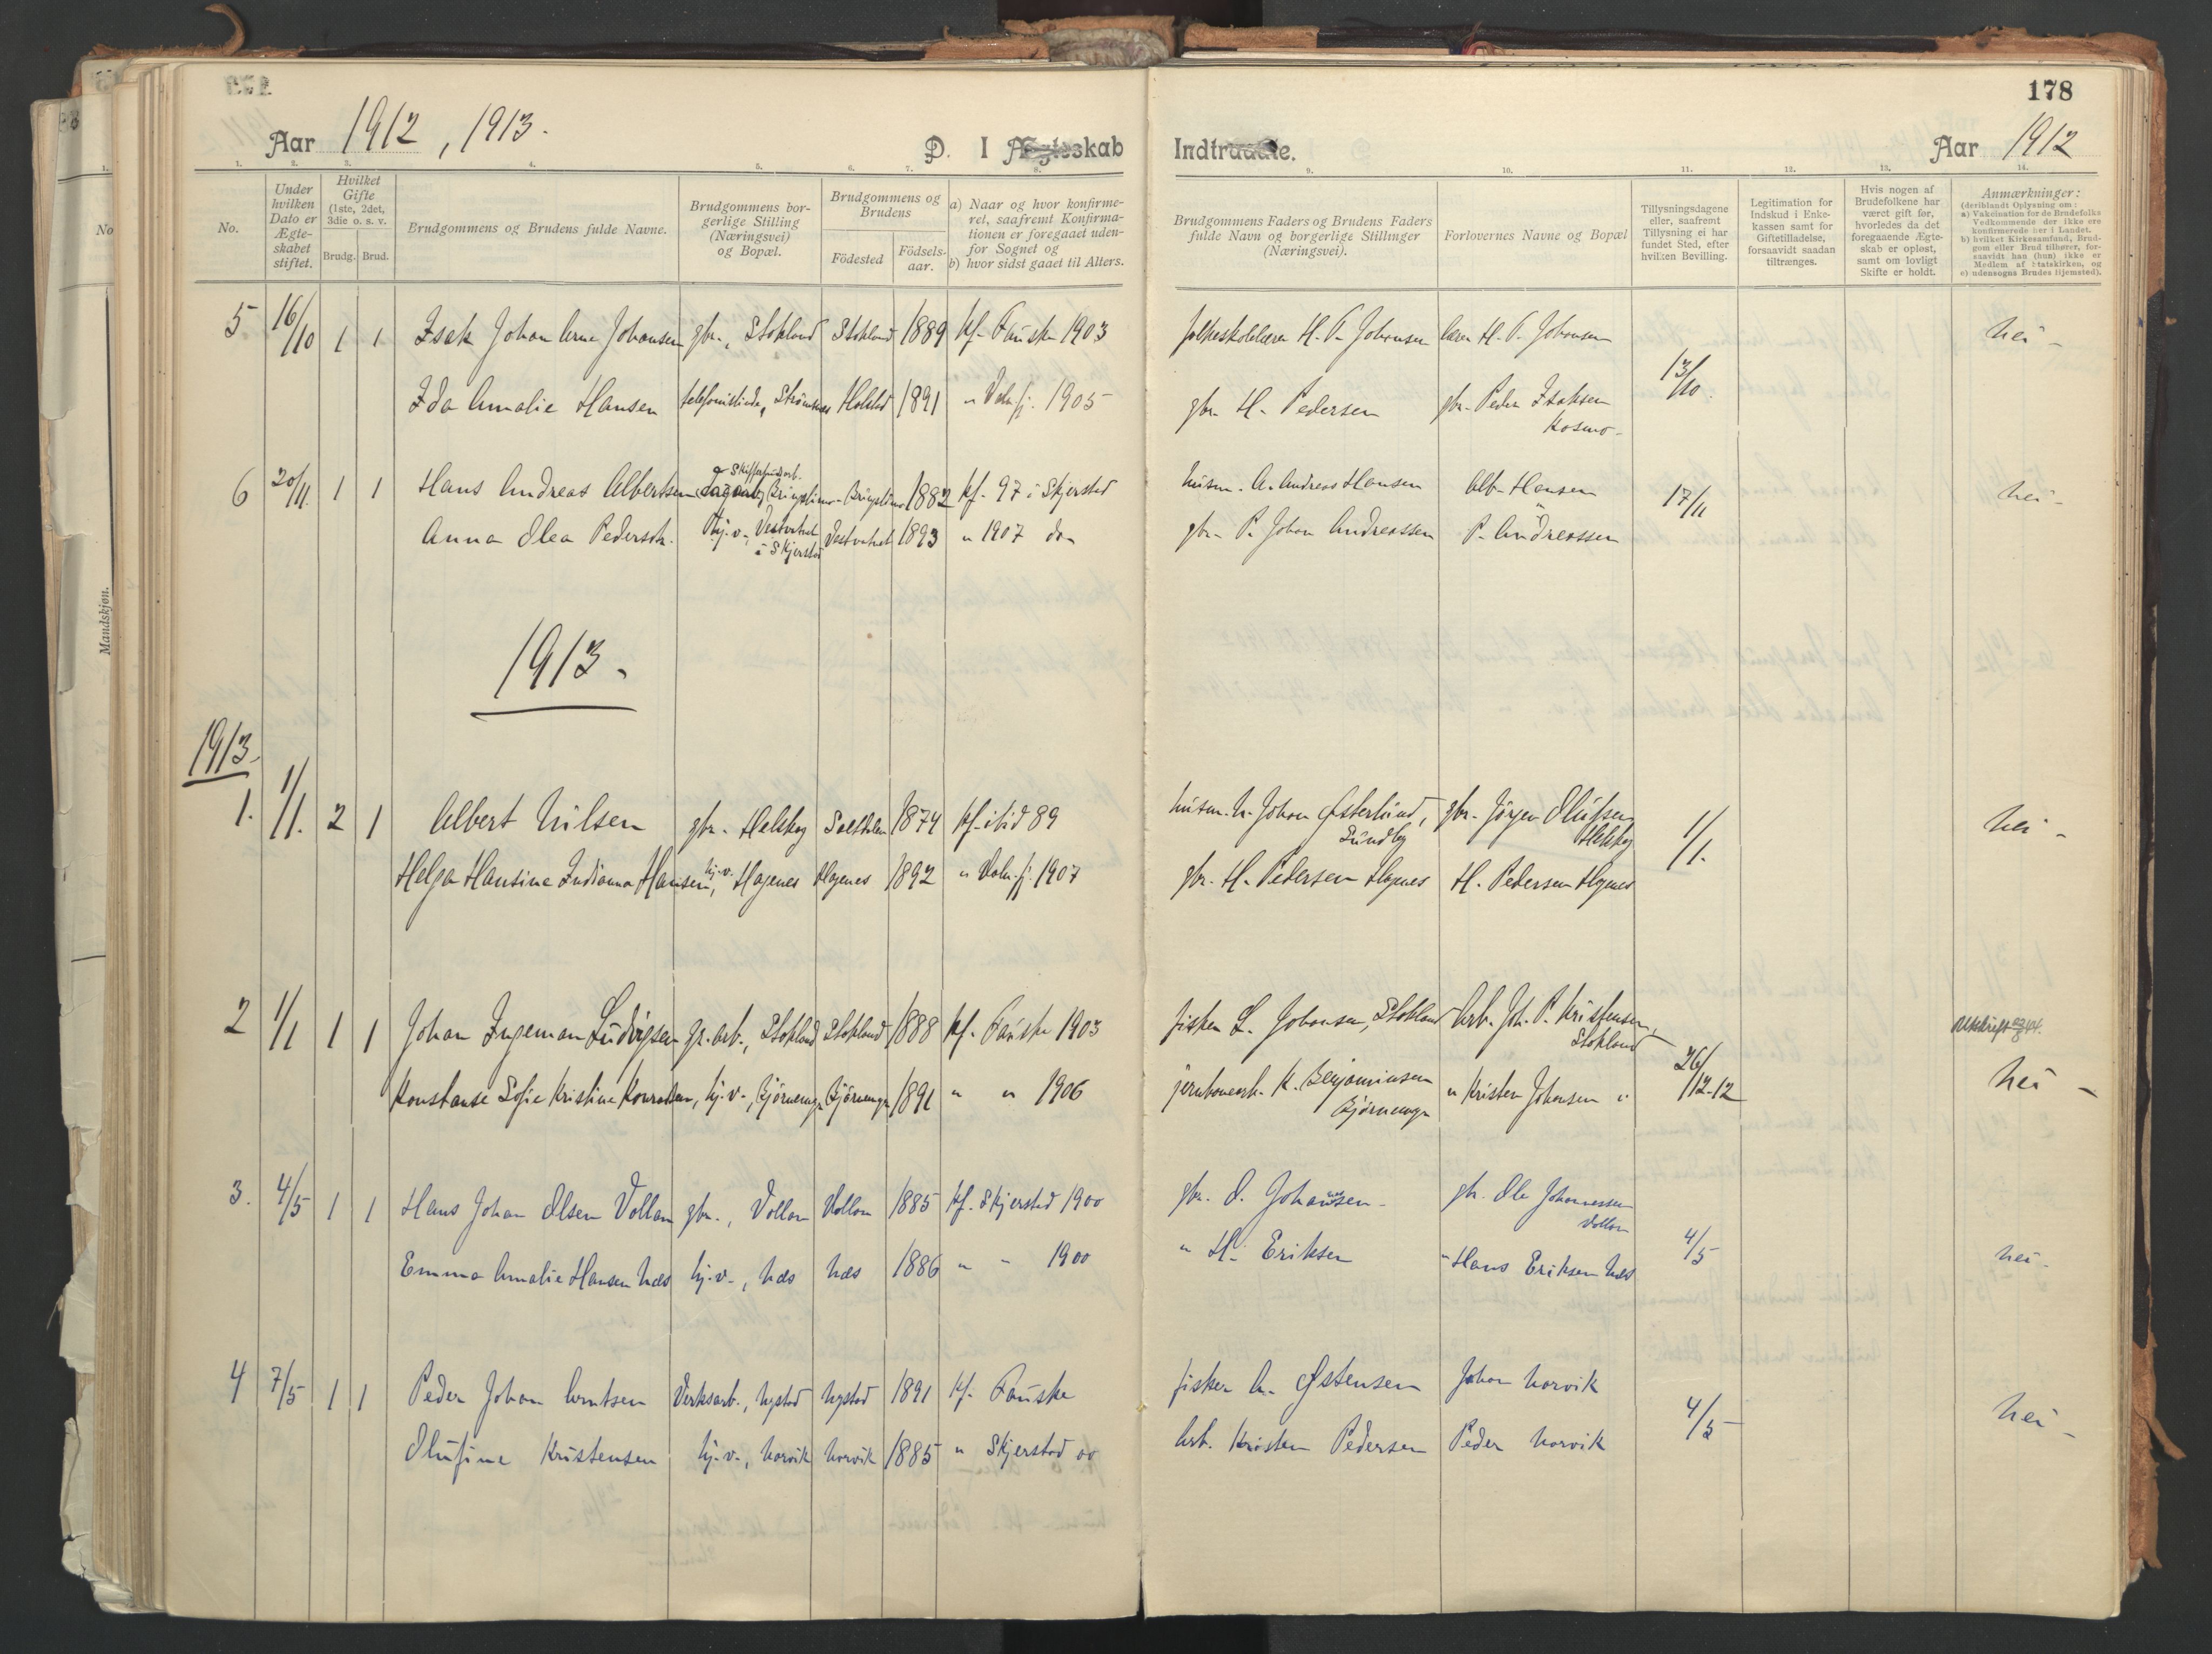 178
Aar 1912, 1913.
D. I Ægteskab
Indtraadte.
Aar 1912
1. 2. 3. 4. 5. 6. 7. 8. 9. 10. 11. 12. 13. 14.
No.
Under hvilken Dato er Ægte-skabet stiftet.
Hvilket Gifte (1ste, 2det, 3die o. s. v.
Brudg. Brud.
Brudgommens og Brudens fulde Navne.
Brudgommens bor-gerlige Stilling (Næringsvei) og Bopæl.
Brudgommens og Brudens
Födested
Födsels-aar.
a) Naar og hvor konfirme-ret, saafremt Konfirma-tionen er foregaaet uden-for Sognet og
b) hvor sidst gaaet til Alters.
Brudgommens Faders og Brudens Faders fulde Navn og borgerlige Stillinger (Næringsvei).
Forlovernes Navne og Bopæl
Tillysningsdagene eller, saafremt Tillysning ei har fundet Sted, efter hvilken Bevilling.
Legitimation for Indskud i Enke-kassen samt for Giftetilladelse, forsaavidt saadan tiltrænges.
Hvis nogen af Brudefolkene har været gift før, hvorledes da det foregaaende Ægte-skab er opløst, samt om lovligt Skifte er holdt.
Anmærkninger: (deriblandt Oplysning om: a) Vakcination for de Brudefolks Vedkommende der ikke ere konfirmerede her i Landet. b) hvilket Kirkesamfund, Brud-gom eller Brud tilhører, for-saavidt han (hun) ikke er Medlem af Statskirken, og c) udensogns Brudes Hjemsted).
5 16/10 1 1 Isak Johan Arne Johansen gbr., Stokland Stokland 1889 kf. Fauske 1903 folkeskolelærer H. P. Johansen lærer H. P. Johansen nei -
13/10.
Ida Amalie Hansen telefonistinde, Strømsnes 1891 " 1905 gbr H. Pedersen gbr. Peder Isaksen
Kosmo -
6 20/11. 1 1 Hans Andreas Albertsen Bringslimo 1882 kf. 97 i Skjerstad husm. A. Andreas Hansen Alb. Hansen 17/11 nei -
Anna Olea Pedersdr. hj. v., Vestvatnet Vestvatnet 1893 " 1907 do gbr. P. Johan Andreassen P. Andreassen
i Skjerstad
1913.
1913.
1. 1/1. 2 1 Albert Nilsen gbr. Helskog Saltdalen 1874 kf. i tid 89 husm. N. Johan Østerlund, gbr. Jörgen Olufsen 1/1. nei -
Lundby Helskog
Helga Hansine Indianna Hansen, hj. v. Hagenes Hagenes 1892 " 1907 gbr. H. Pedersen Hagenes H. Pedersen Hagenes
2 1/1 1 1 Johan Ingeman Ludvigsen gr. arb., Stokland Stokland 1888 kf. Fauske 1903 fisker L. Johansen, Stokland Arb. Joh. P. Kristensen,
Stokland
Konstanse Sofie Kristine Konradsen, hj. v., Bjørneng Bjørneng 1891 " " 1906 jernbanearb. K. Benjaminsen " Kristen Johansen " 26/12-12 nei -
3. 4/5 1 1 Hans Johan Olsen Vollan gbr., Vollan Vollan 1885 kf. Skjerstad 1900 gbr. O. Johansen - gbr. Ole Johannessen
Vollan 4/5
Emma Amalie Hansen Næs hj. v., Næs Næs 1886 " - 1900 " H. Eriksen " Hans Eriksen Næs nei -
4 7/5 1 1 Peder Johan Arntsen Verksarb., Nystad Nystad 1891 kf. Fauske fisker A. Østensen Johan Norvik 4/5 nei -
Olufine Kristensen hj. v., Norvik Norvik 1885 " Skjerstad 00 Arb. Kristen Pedersen Peder Norvik
Mandskjøn.